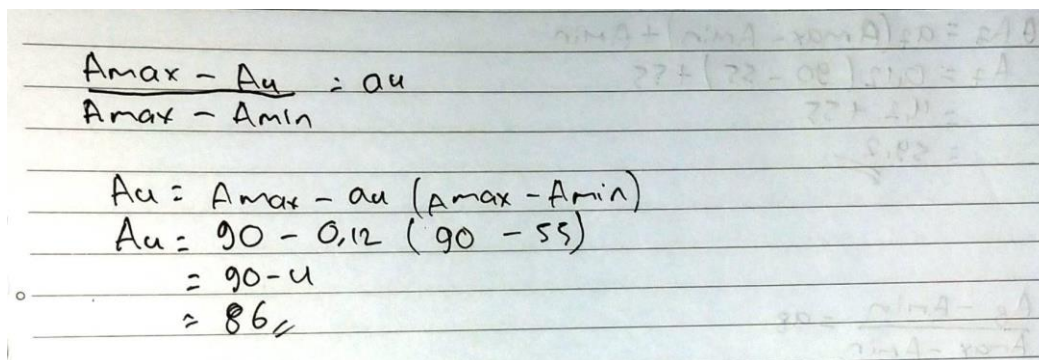 Amax - A4 = a4
Amax - Amin
A4 = Amax - a4 (Amax - Amin)
A4 = 90 - 0,12 (90 - 55)
= 90 - 4
= 86